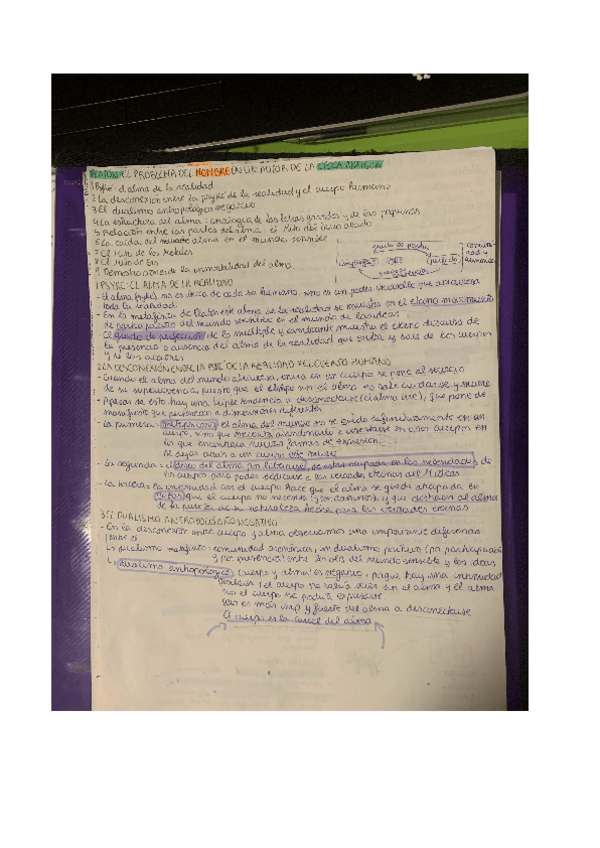 PLATÓN: EL PROBLEMA DEL HOMBRE EN UN AUTOR DE LA ÉPOCA ANTIGUA
1 Psyké: el alma de la realidad
2 La desconexión entre la psyké de la realidad y el cuerpo humano
3 El dualismo antropológico negativo
4 La estructura del alma: analogía de las letras grandes y de las pequeñas
5 Relación entre las partes del alma: el mito del carro alado
6 La caída del alma en el mundo sensible
7 El mito de los Metales
8 El mito de Er
9 Demostraciones de la inmortalidad del alma
grado de perfec
perfecto
comuni-
dad y
1 PSYKE: EL ALMA DE LA REALIDAD
- El alma (psyké) no es única de cada ser humano, sino es un poder invisible que atraviesa
toda la realidad.
- En la metafísica de Platón este alma de la realidad se muestra en el eterno
de participación del mundo sensible en el mundo de las ideas
- El grado de perfección de lo múltiple y cambiante muestra el eterno discurso de
la presencia o ausencia del alma de la realidad que entra y sale de los cuerpos
y de las
2 LA DESCONEXIÓN ENTRE LA PSIKÉ DE LA REALIDAD Y EL CUERPO HUMANO
- Cuando el alma del mundo atraviesa, entra en un cuerpo se pone al servicio
de su supervivencia, puesto que el cuerpo sin el alma no sabe cuidarse y muere
- A pesar de esto hay una triple tendencia a desconectarse (el alma de él), que pone de
manifiesto que pertenecen a dimensiones diferentes
- La primera: el alma del mundo no se queda indefinidamente en un
cuerpo, sino que necesita abandonarlo e insertarse en otros cuerpos en
los que encontrará nuevas formas de expresión
- La segunda: deseo del alma por liberarse, de estar ocupada en las necesidades de
los cuerpos para poder dedicarse a las verdades eternas del M.Ideas
- La tercera: la intensidad con el cuerpo hace que el alma se quede atrapada en
que el cuerpo no necesita (son caminos) y que distraen al alma
de la de su naturaleza hecha para las verdades eternas
3 EL DUALISMO ANTROPOLÓGICO NEGATIVO
- En la desconexión entre cuerpo y alma observamos una importante diferencia
entre el
dualismo metafísico: comunidad armónica, un dualismo positivo (por participación
y por presencia) entre los objs del mundo sensible y las ideas
dualismo antropológico (cuerpo y alma) es negativo: porque hay una intensidad
el cuerpo no sabría vivir sin el alma y el alma
sin el cuerpo no podría expresarse
pero es más imp y fuerte del alma a desconectarse
El cuerpo es la cárcel del alma